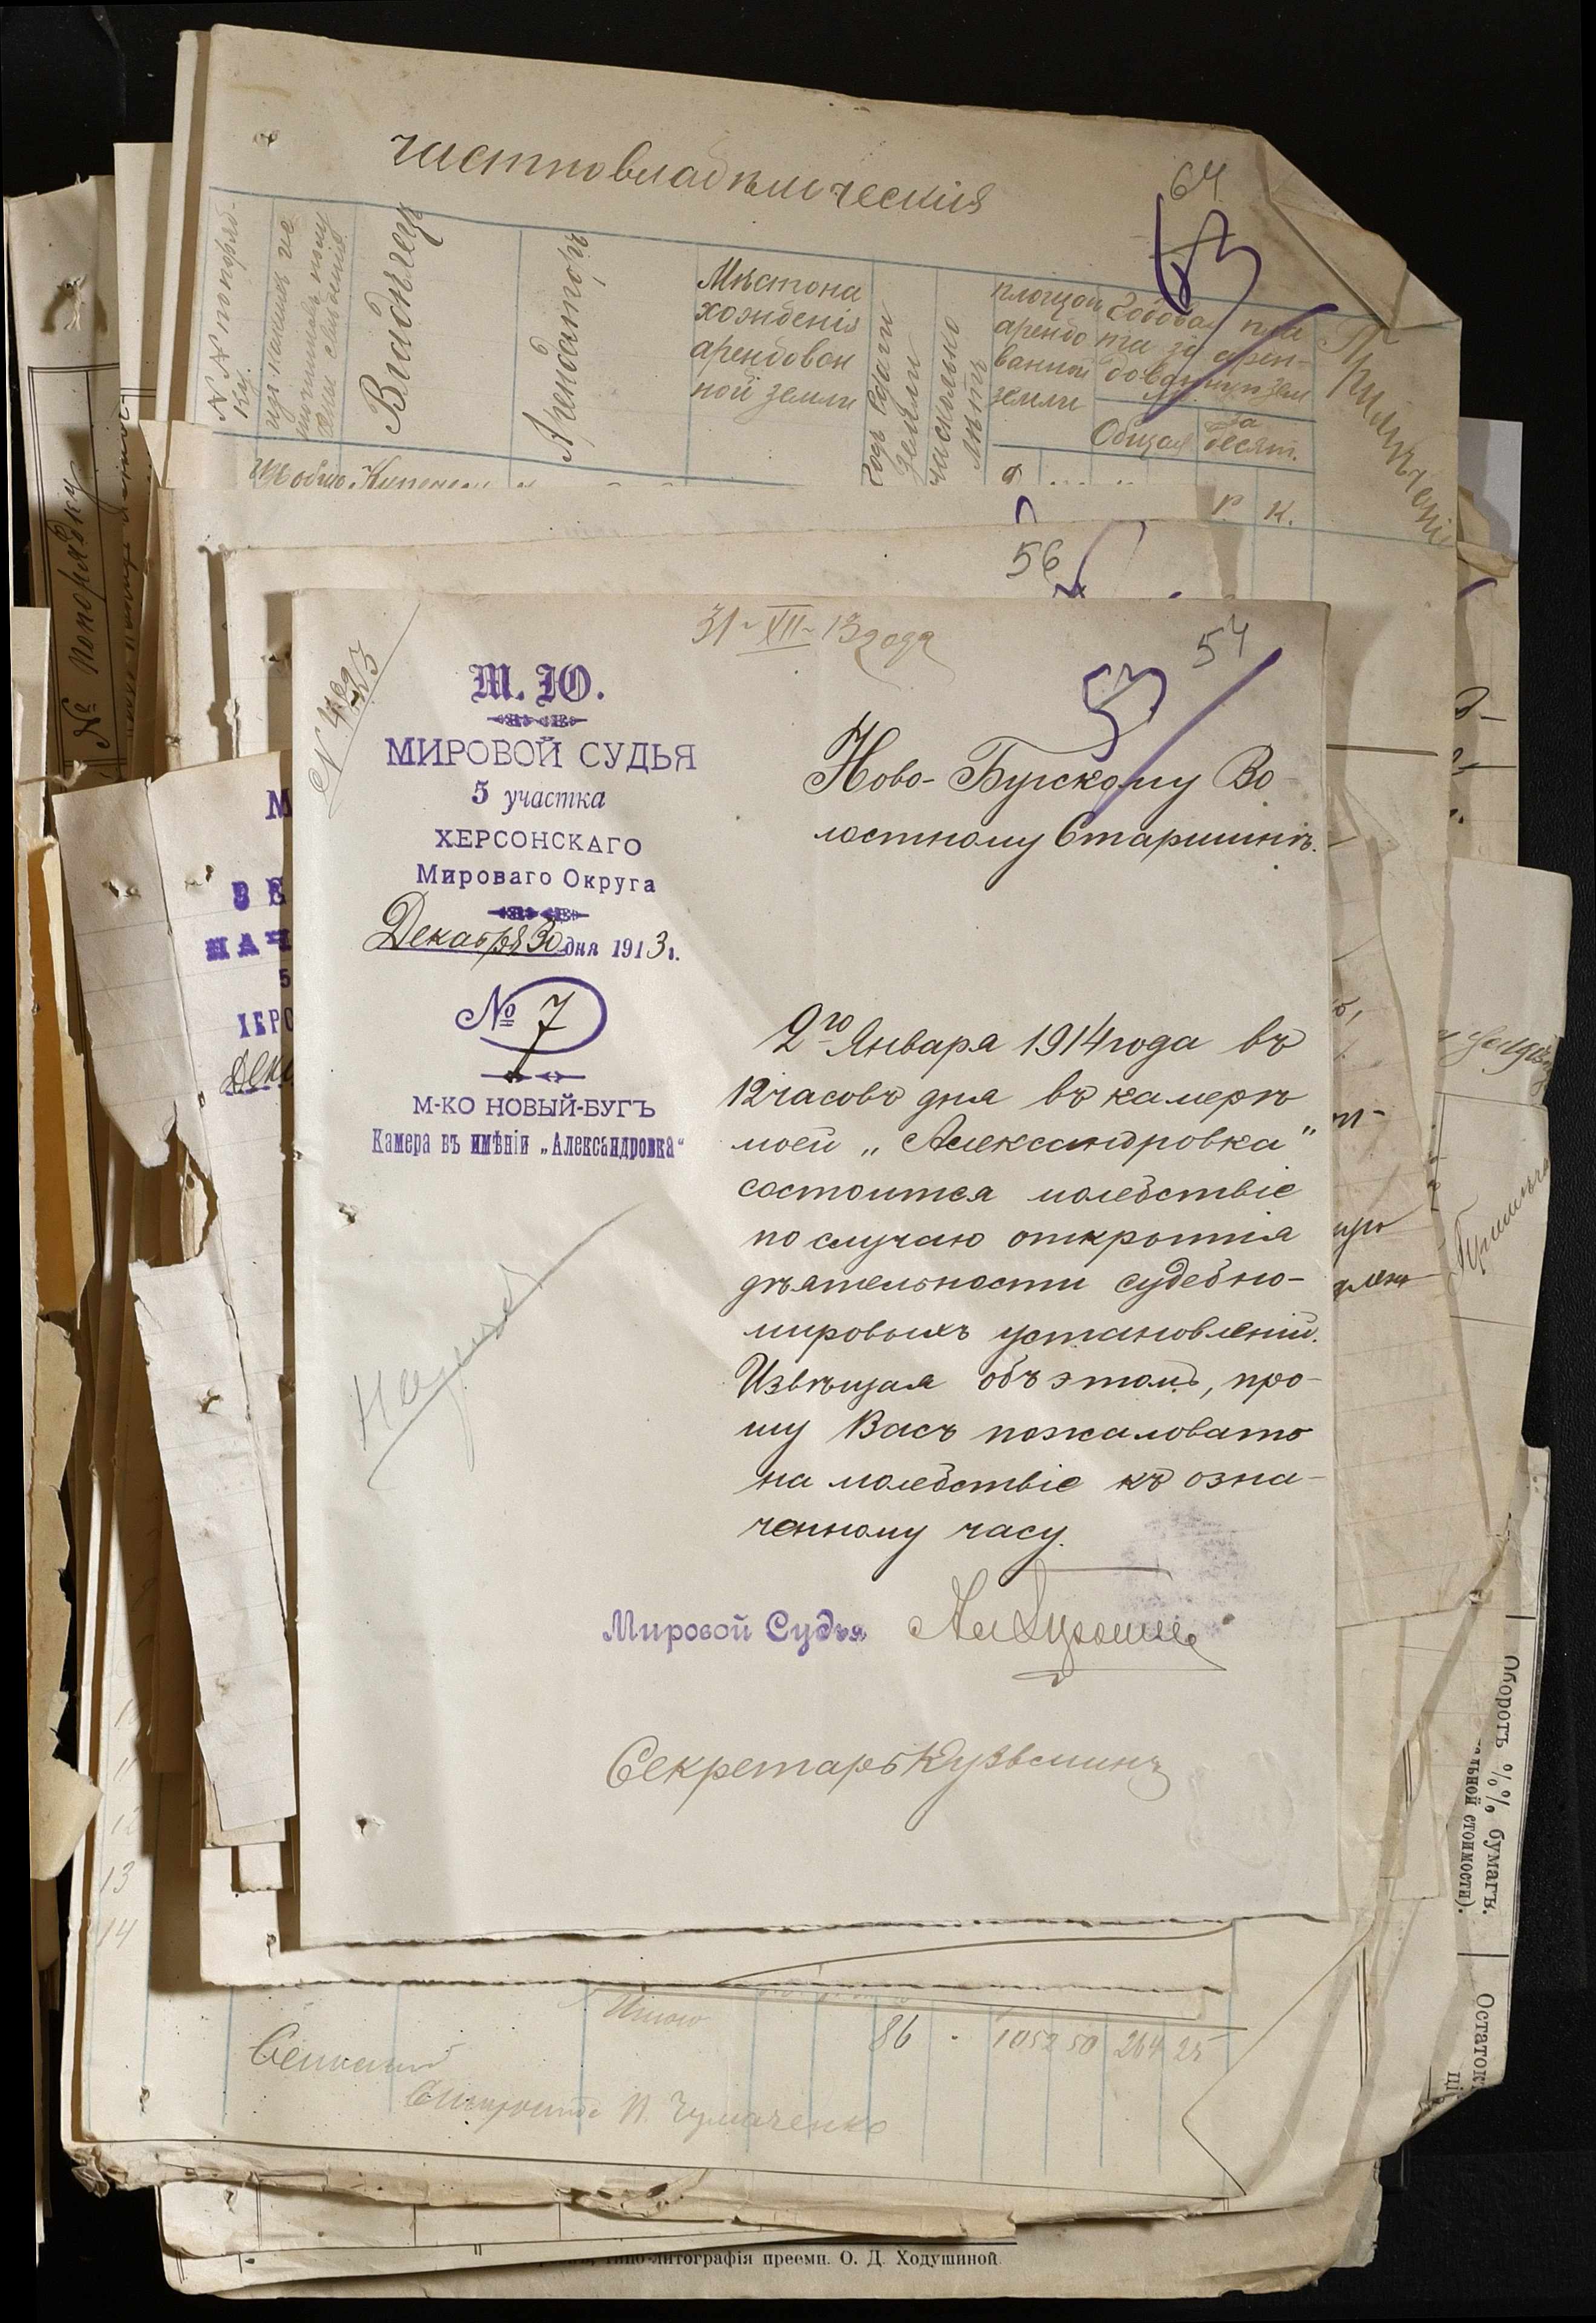 частновладѣльческія
64
63
Владѣлецъ
Арендаторъ
Мѣстона
хожденія
арендован
ной земли
Годъ сдачи
земли
насколько
лѣтъ
площадь
арендо
ванной
земли
Годовая пла
та за арен-
дованную зем
Общая
за
десят.
Примѣчаніе
Р. К.
№ попорядку
56
31-XII-13 года
54
53
М. Ю.
МИРОВОЙ СУДЬЯ
5 участка
ХЕРСОНСКАГО
Мироваго Округа
Декабря 30 дня 1913 г.
№ 7
М-КО НОВЫЙ-БУГЪ
Камера въ имѣніи „Александровка“
Ново-Бугскому Во
лостному Старшинѣ.
2го Января 1914 года въ
12 часовъ дня въ камерѣ
моей „Александровка“
состоится молебствіе
по случаю открытія
дѣятельности судебно-
мировыхъ установленій.
Извѣщая объ этомъ, про-
шу Васъ пожаловать
на молебствіе къ озна-
ченному часу.
Мировой Судья
Секретарь Кузьминъ
13
14
Итого 86 1052 50 264 25
Сельскій
Староста И. Чумаченко
Оборотъ %% бумагъ.
стоимости).
Остаток
типо-литографія преемн. О. Д. Ходушиной.